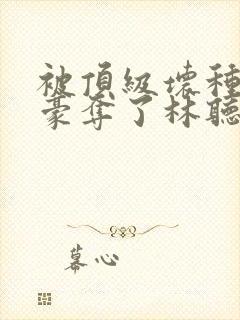 被頂級壞種
豪奪了林聽
幕心